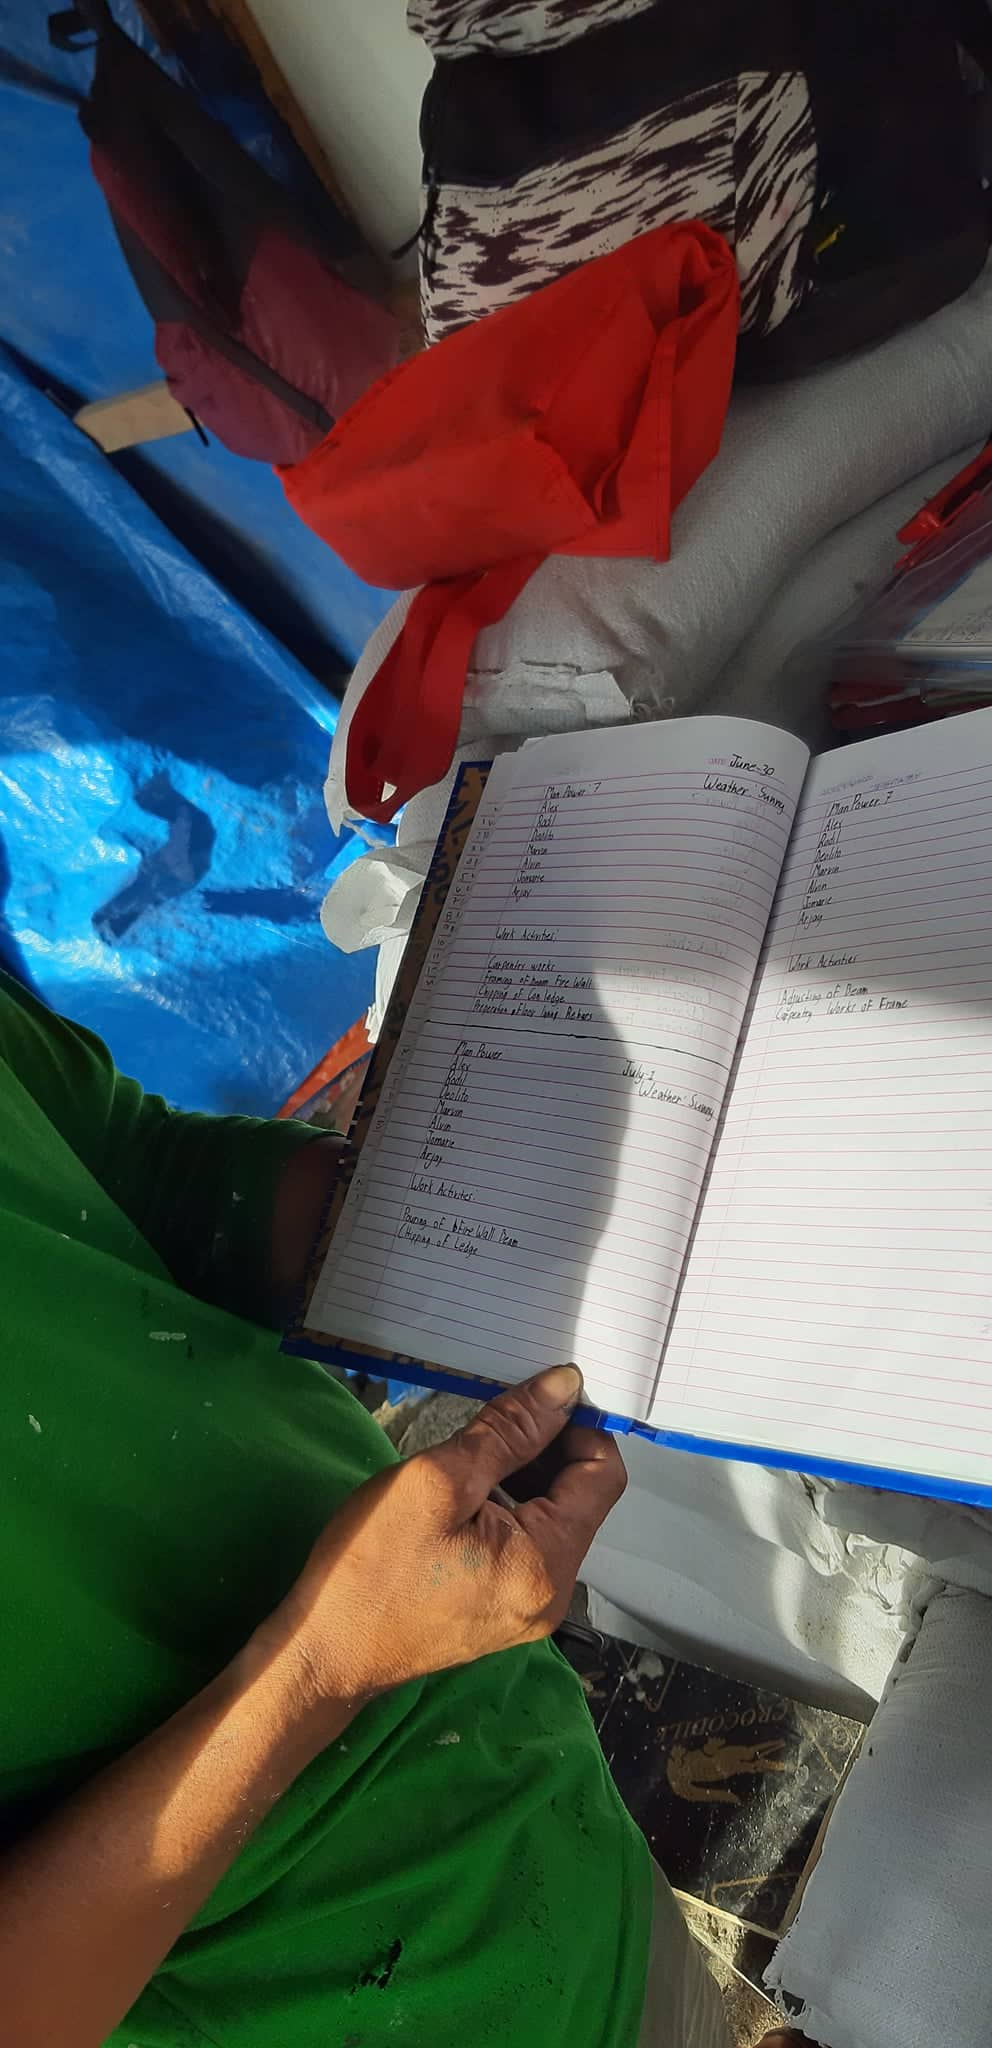 DATE June-30
Man Power: 7
Weather: Sunny
Alex
Rodil
Deolito
Marvin
Alvin
Jomarie
Arjay
Work Activities:
Carpentry works
Framing of Beam Fire Wall
Chipping of Con. ledge
Preperation of Rebars
Man Power:
July-1
Weather: Sunny
Alex
Rodil
Deolito
Marvin
Alvin
Jomarie
Arjay
Work Activities:
Pouring of Fire Wall Beam
Chipping of Ledge
Man Power: 7
Alex
Rodil
Deolito
Marvin
Alvin
Jomarie
Arjay
Work Activities
Adjusting of Beam
Carpentry Works of Frame
CROCODILE